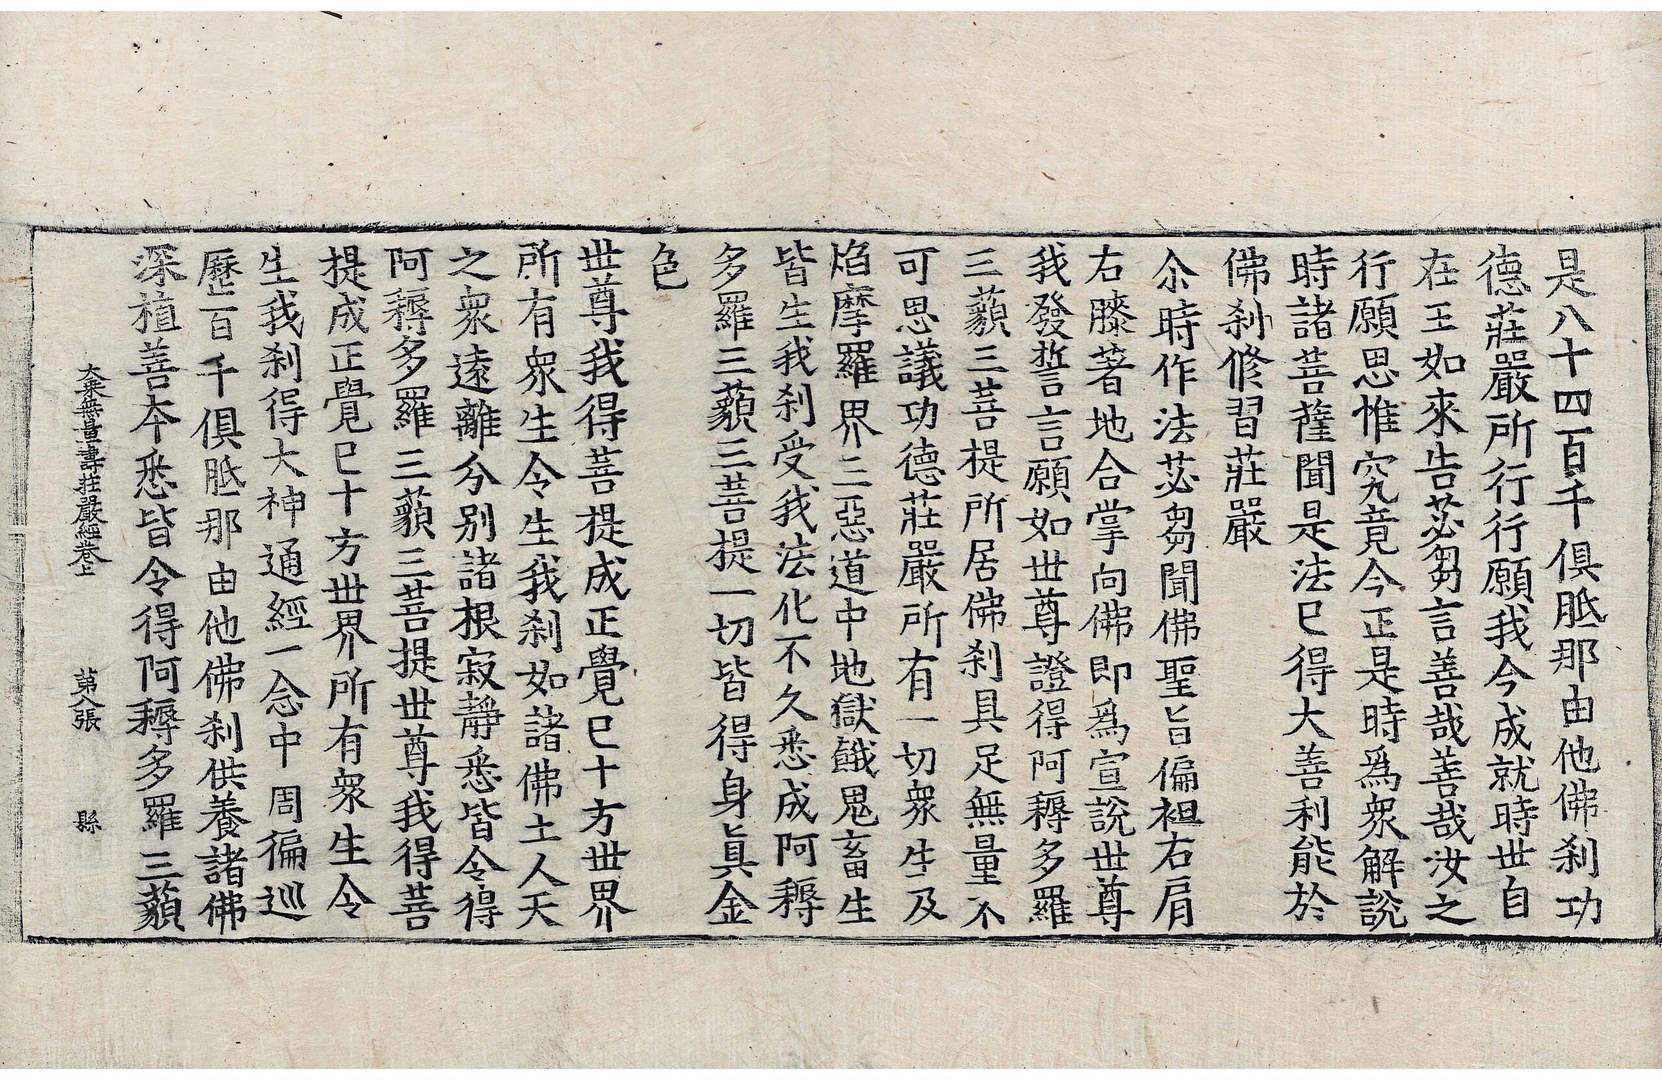 是八十四百千俱胝那由他佛刹功
德莊嚴所行行願我今成就時世自
在王如來告苾芻言善哉善哉汝之
行願思惟究竟今正是時爲衆解說
時諸菩薩聞是法已得大善利能於
佛刹修習莊嚴
尒時作法苾芻聞佛聖旨偏袒右肩
右膝著地合掌向佛即爲宣說世尊
我發誓言願如世尊證得阿耨多羅
三藐三菩提所居佛刹具足無量不
可思議功德莊嚴所有一切衆生及
焰摩羅界三惡道中地獄餓鬼畜生
皆生我刹受我法化不久悉成阿耨
多羅三藐三菩提一切皆得身眞金
色
世尊我得菩提成正覺已十方世界
所有衆生令生我刹如諸佛土人天
之衆遠離分別諸根寂靜悉皆令得
阿耨多羅三藐三菩提世尊我得菩
提成正覺已十方世界所有衆生令
生我刹得大神通經一念中周徧巡
歷百千俱胝那由他佛刹供養諸佛
深植善本悉皆令得阿耨多羅三藐
大乘無量壽莊嚴經卷上 第八張 縣